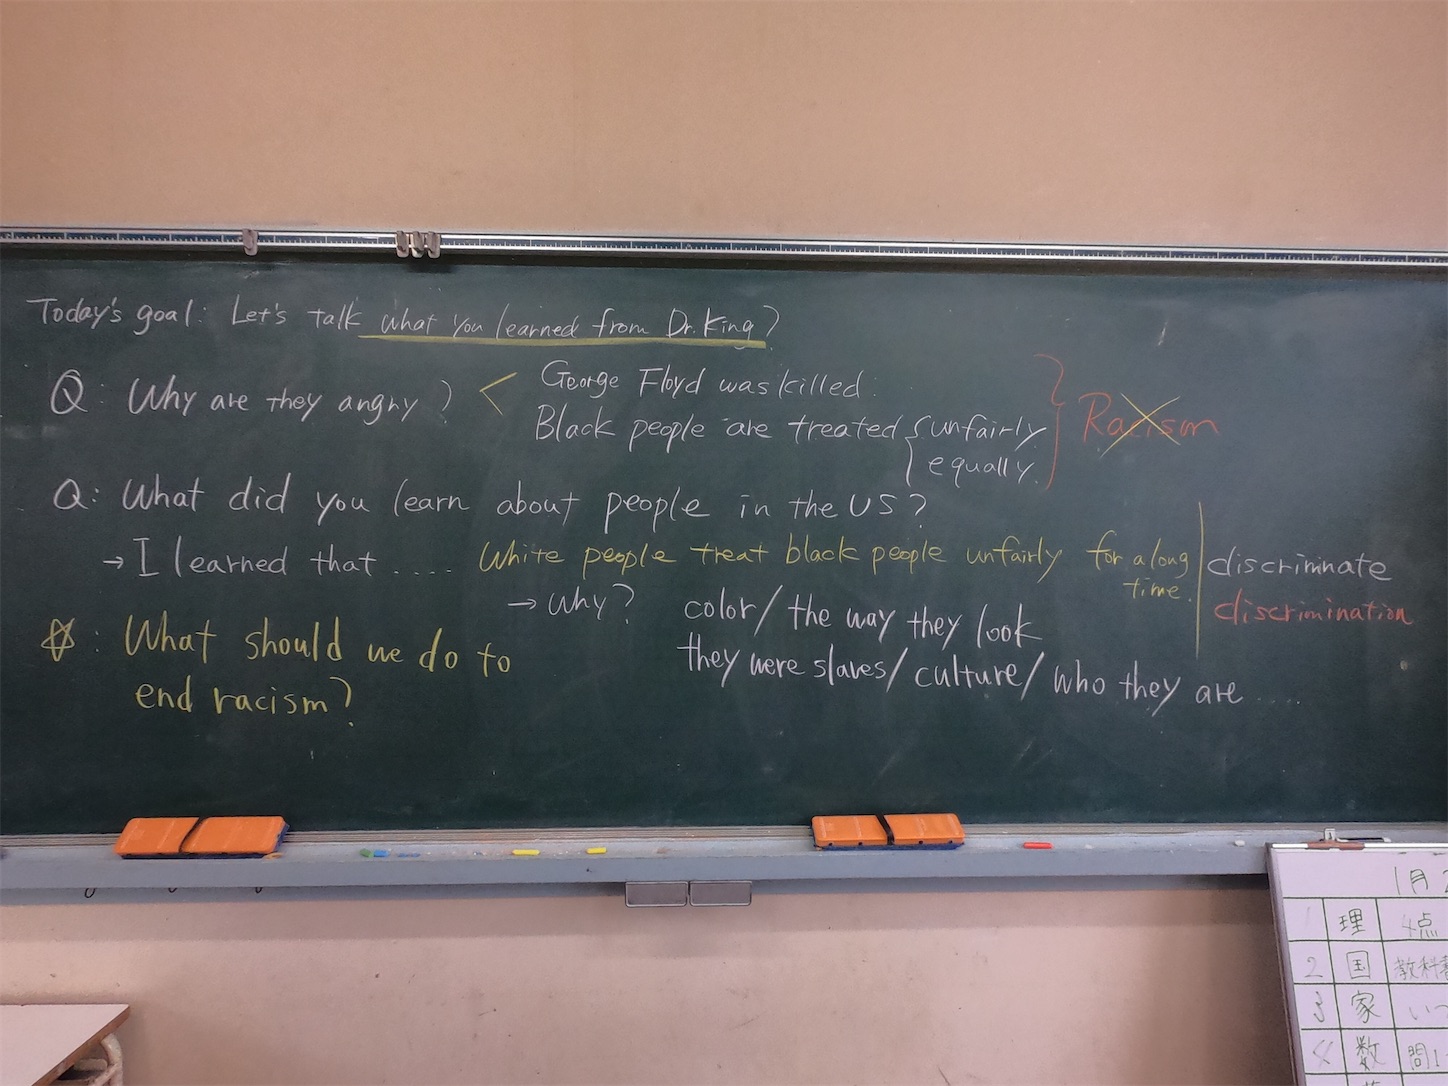 Today's goal: Let's talk what you learned from Dr. King?
Q: Why are they angry?
George Floyd was killed.
Black people are treated unfairly
equally.
Racism
Q: What did you learn about people in the US?
→ I learned that .... White people treat black people unfairly for a long
time.
→ Why?
color/ the way they look
they were slaves/ culture/ who they are ....
discriminate
discrimination
☆: What should we do to
end racism?
1月
1 理 4点
2 国 教科
3 家 いつ
4 数 問1